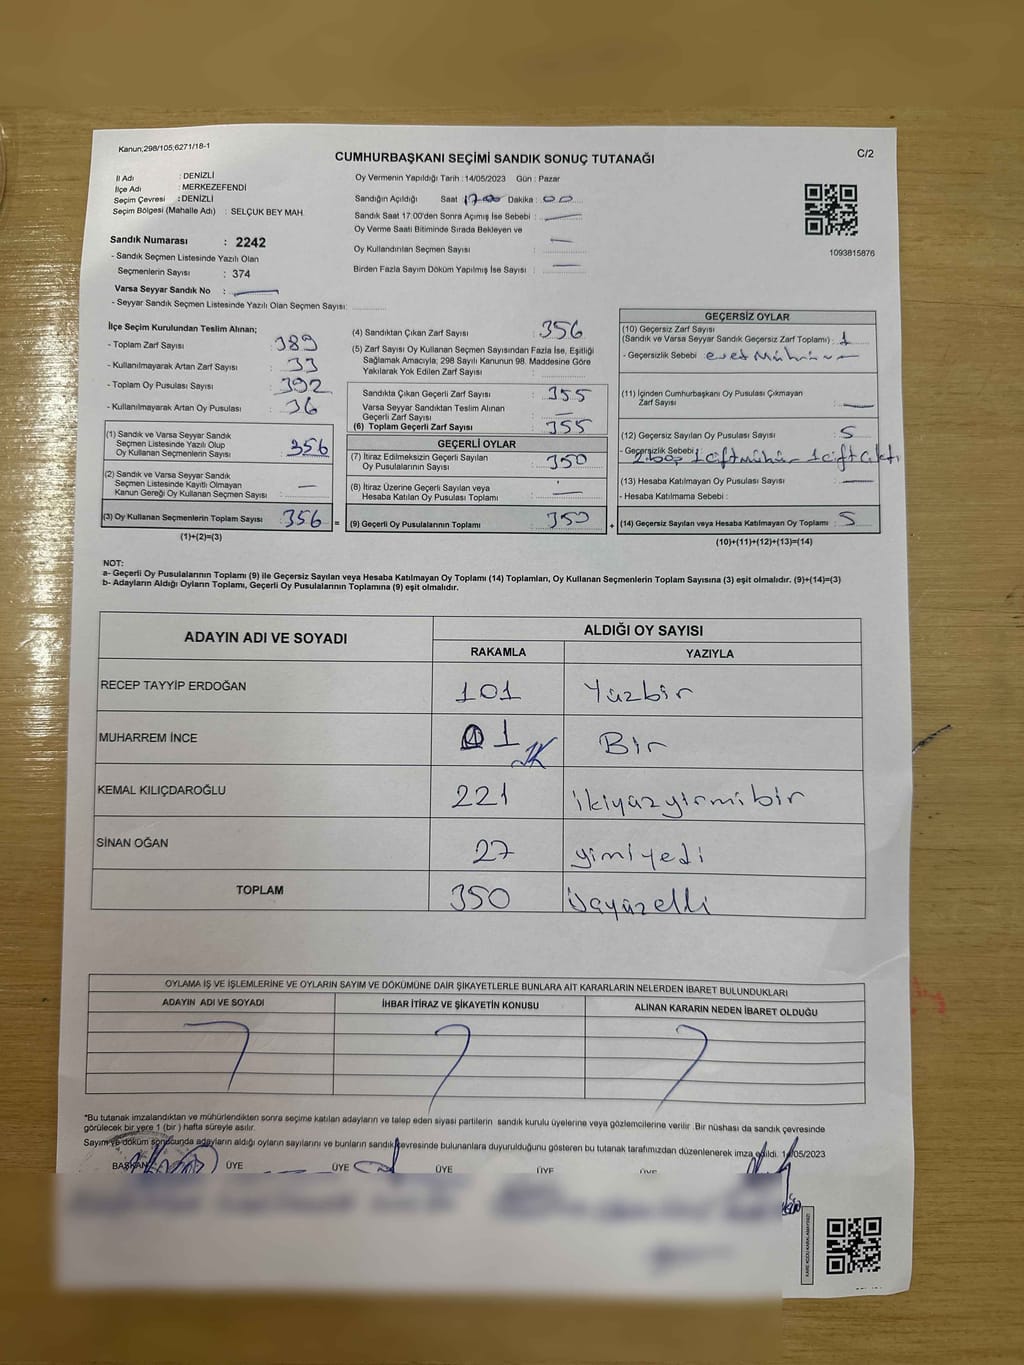 Kanun;298/105;6271/18-1
CUMHURBAŞKANI SEÇİMİ SANDIK SONUÇ TUTANAĞI
C/2
İl Adı : DENİZLİ
İlçe Adı : MERKEZEFENDİ
Seçim Çevresi : DENİZLİ
Seçim Bölgesi (Mahalle Adı) : SELÇUK BEY MAH.
Sandık Numarası : 2242
- Sandık Seçmen Listesinde Yazılı Olan
Seçmenlerin Sayısı : 374
Varsa Seyyar Sandık No :
- Seyyar Sandık Seçmen Listesinde Yazılı Olan Seçmen Sayısı:
Oy Vermenin Yapıldığı Tarih :14/05/2023 Gün : Pazar
Sandığın Açıldığı Saat 17.00 Dakika : 00
Sandık Saat 17:00'den Sonra Açımış İse Sebebi :
Oy Verme Saati Bitiminde Sırada Bekleyen ve
Oy Kullandırılan Seçmen Sayısı :
Birden Fazla Sayım Döküm Yapılmış İse Sayısı :
1093815876
İlçe Seçim Kurulundan Teslim Alınan;
- Toplam Zarf Sayısı : 389
- Kullanılmayarak Artan Zarf Sayısı : 33
- Toplam Oy Pusulası Sayısı : 392
- Kullanılmayarak Artan Oy Pusulası : 36
(1) Sandık ve Varsa Seyyar Sandık
Seçmen Listesinde Yazılı Olup
Oy Kullanan Seçmenlerin Sayısı : 356
(2) Sandık ve Varsa Seyyar Sandık
Seçmen Listesinde Kayıtlı Olmayan
Kanun Gereği Oy Kullanan Seçmen Sayısı :
(3) Oy Kullanan Seçmenlerin Toplam Sayısı : 356 =
(1)+(2)=(3)
(4) Sandıktan Çıkan Zarf Sayısı : 356
(5) Zarf Sayısı Oy Kullanan Seçmen Sayısından Fazla İse, Eşitliği
Sağlamak Amacıyla; 298 Sayılı Kanunun 98. Maddesine Göre
Yakılarak Yok Edilen Zarf Sayısı :
Sandıkta Çıkan Geçerli Zarf Sayısı : 355
Varsa Seyyar Sandıktan Teslim Alınan
Geçerli Zarf Sayısı :
(6) Toplam Geçerli Zarf Sayısı : 355
GEÇERLİ OYLAR
(7) İtiraz Edilmeksizin Geçerli Sayılan
Oy Pusulalarının Sayısı : 350
(8) İtiraz Üzerine Geçerli Sayılan veya
Hesaba Katılan Oy Pusulası Toplamı :
(9) Geçerli Oy Pusulalarının Toplamı : 350 +
GEÇERSİZ OYLAR
(10) Geçersiz Zarf Sayısı
(Sandık ve Varsa Seyyar Sandık Geçersiz Zarf Toplamı) : 1
- Geçersizlik Sebebi : evet
(11) İçinden Cumhurbaşkanı Oy Pusulası Çıkmayan
Zarf Sayısı :
(12) Geçersiz Sayılan Oy Pusulası Sayısı : 5
- Geçersizlik Sebebi: 2 boş 1 çift mühür 1 çift çıktı
(13) Hesaba Katılmayan Oy Pusulası Sayısı :
- Hesaba Katılmama Sebebi :
(14) Geçersiz Sayılan veya Hesaba Katılmayan Oy Toplamı : 5
(10)+(11)+(12)+(13)=(14)
NOT:
a- Geçerli Oy Pusulalarının Toplamı (9) ile Geçersiz Sayılan veya Hesaba Katılmayan Oy Toplamı (14) Toplamları, Oy Kullanan Seçmenlerin Toplam Sayısına (3) eşit olmalıdır. (9)+(14)=(3)
b- Adayların Aldığı Oyların Toplamı, Geçerli Oy Pusulalarının Toplamına (9) eşit olmalıdır.
ADAYIN ADI VE SOYADI
ALDIĞI OY SAYISI
RAKAMLA YAZIYLA
RECEP TAYYİP ERDOĞAN 101 Yüzbir
MUHARREM İNCE 1 Bir
KEMAL KILIÇDAROĞLU 221 ikiyüzyirmibir
SİNAN OĞAN 27 yimiyedi
TOPLAM 350 üçyüzelli
OYLAMA İŞ VE İŞLEMLERİNE VE OYLARIN SAYIM VE DÖKÜMÜNE DAİR ŞİKAYETLERLE BUNLARA AİT KARARLARIN NELERDEN İBARET BULUNDUKLARI
ADAYIN ADI VE SOYADI İHBAR İTİRAZ VE ŞİKAYETİN KONUSU ALINAN KARARIN NEDEN İBARET OLDUĞU
*Bu tutanak imzalandıktan ve mühürlendikten sonra seçime katılan adayların ve talep eden siyasi partilerin sandık kurulu üyelerine veya gözlemcilerine verilir .Bir nüshası da sandık çevresinde
görülecek bir yere 1 (bir ) hafta süreyle asılır.
Sayım ve döküm sonucunda adayların aldığı oyların sayılarını ve bunların sandık çevresinde bulunanlara duyurulduğunu gösteren bu tutanak tarafımızdan düzenlenerek imza edildi. 14/05/2023
BAŞKAN ÜYE ÜYE ÜYE ÜYE ÜYE